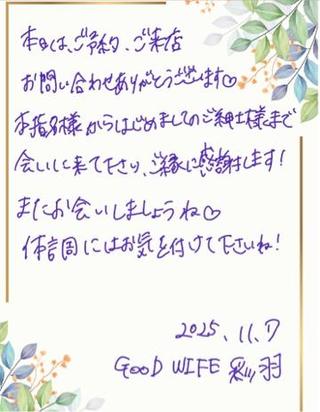 本日は、ご予約、ご来店
お問い合わせありがとうございます♡
本指名様からはじめましてのご紳士様まで
会いに来て下さり、ご縁に感謝します!
またお会いしましょうね♡
体調にはお気を付けて下さいね!
2025.11.7
GOOD WIFE 彩羽